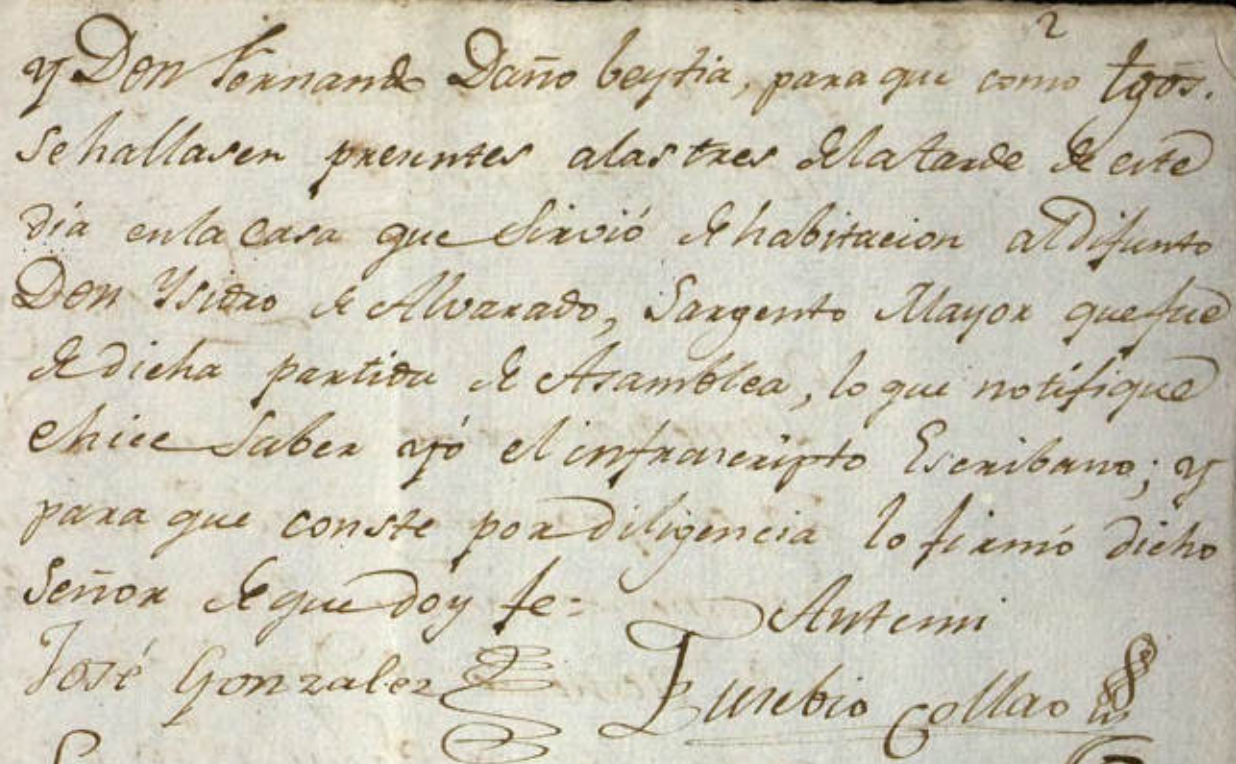 2
y Don Fernando Daño beytia, para que como tgõs.
se hallasen presentes alas tres dela tarde de este
dia enla casa que Sirvió de habitacion al Difunto
Don Ysidro de Alvarado, Sargento Mayor que fué
de dicha partida de Asamblea, lo que notifiqué
e hice Saber yó el infrascripto Escribano; y
para que conste por Diligencia lo firmó dicho
Señor de que doy fe=
Antemi
José Gonzalez
Eusebio Collao